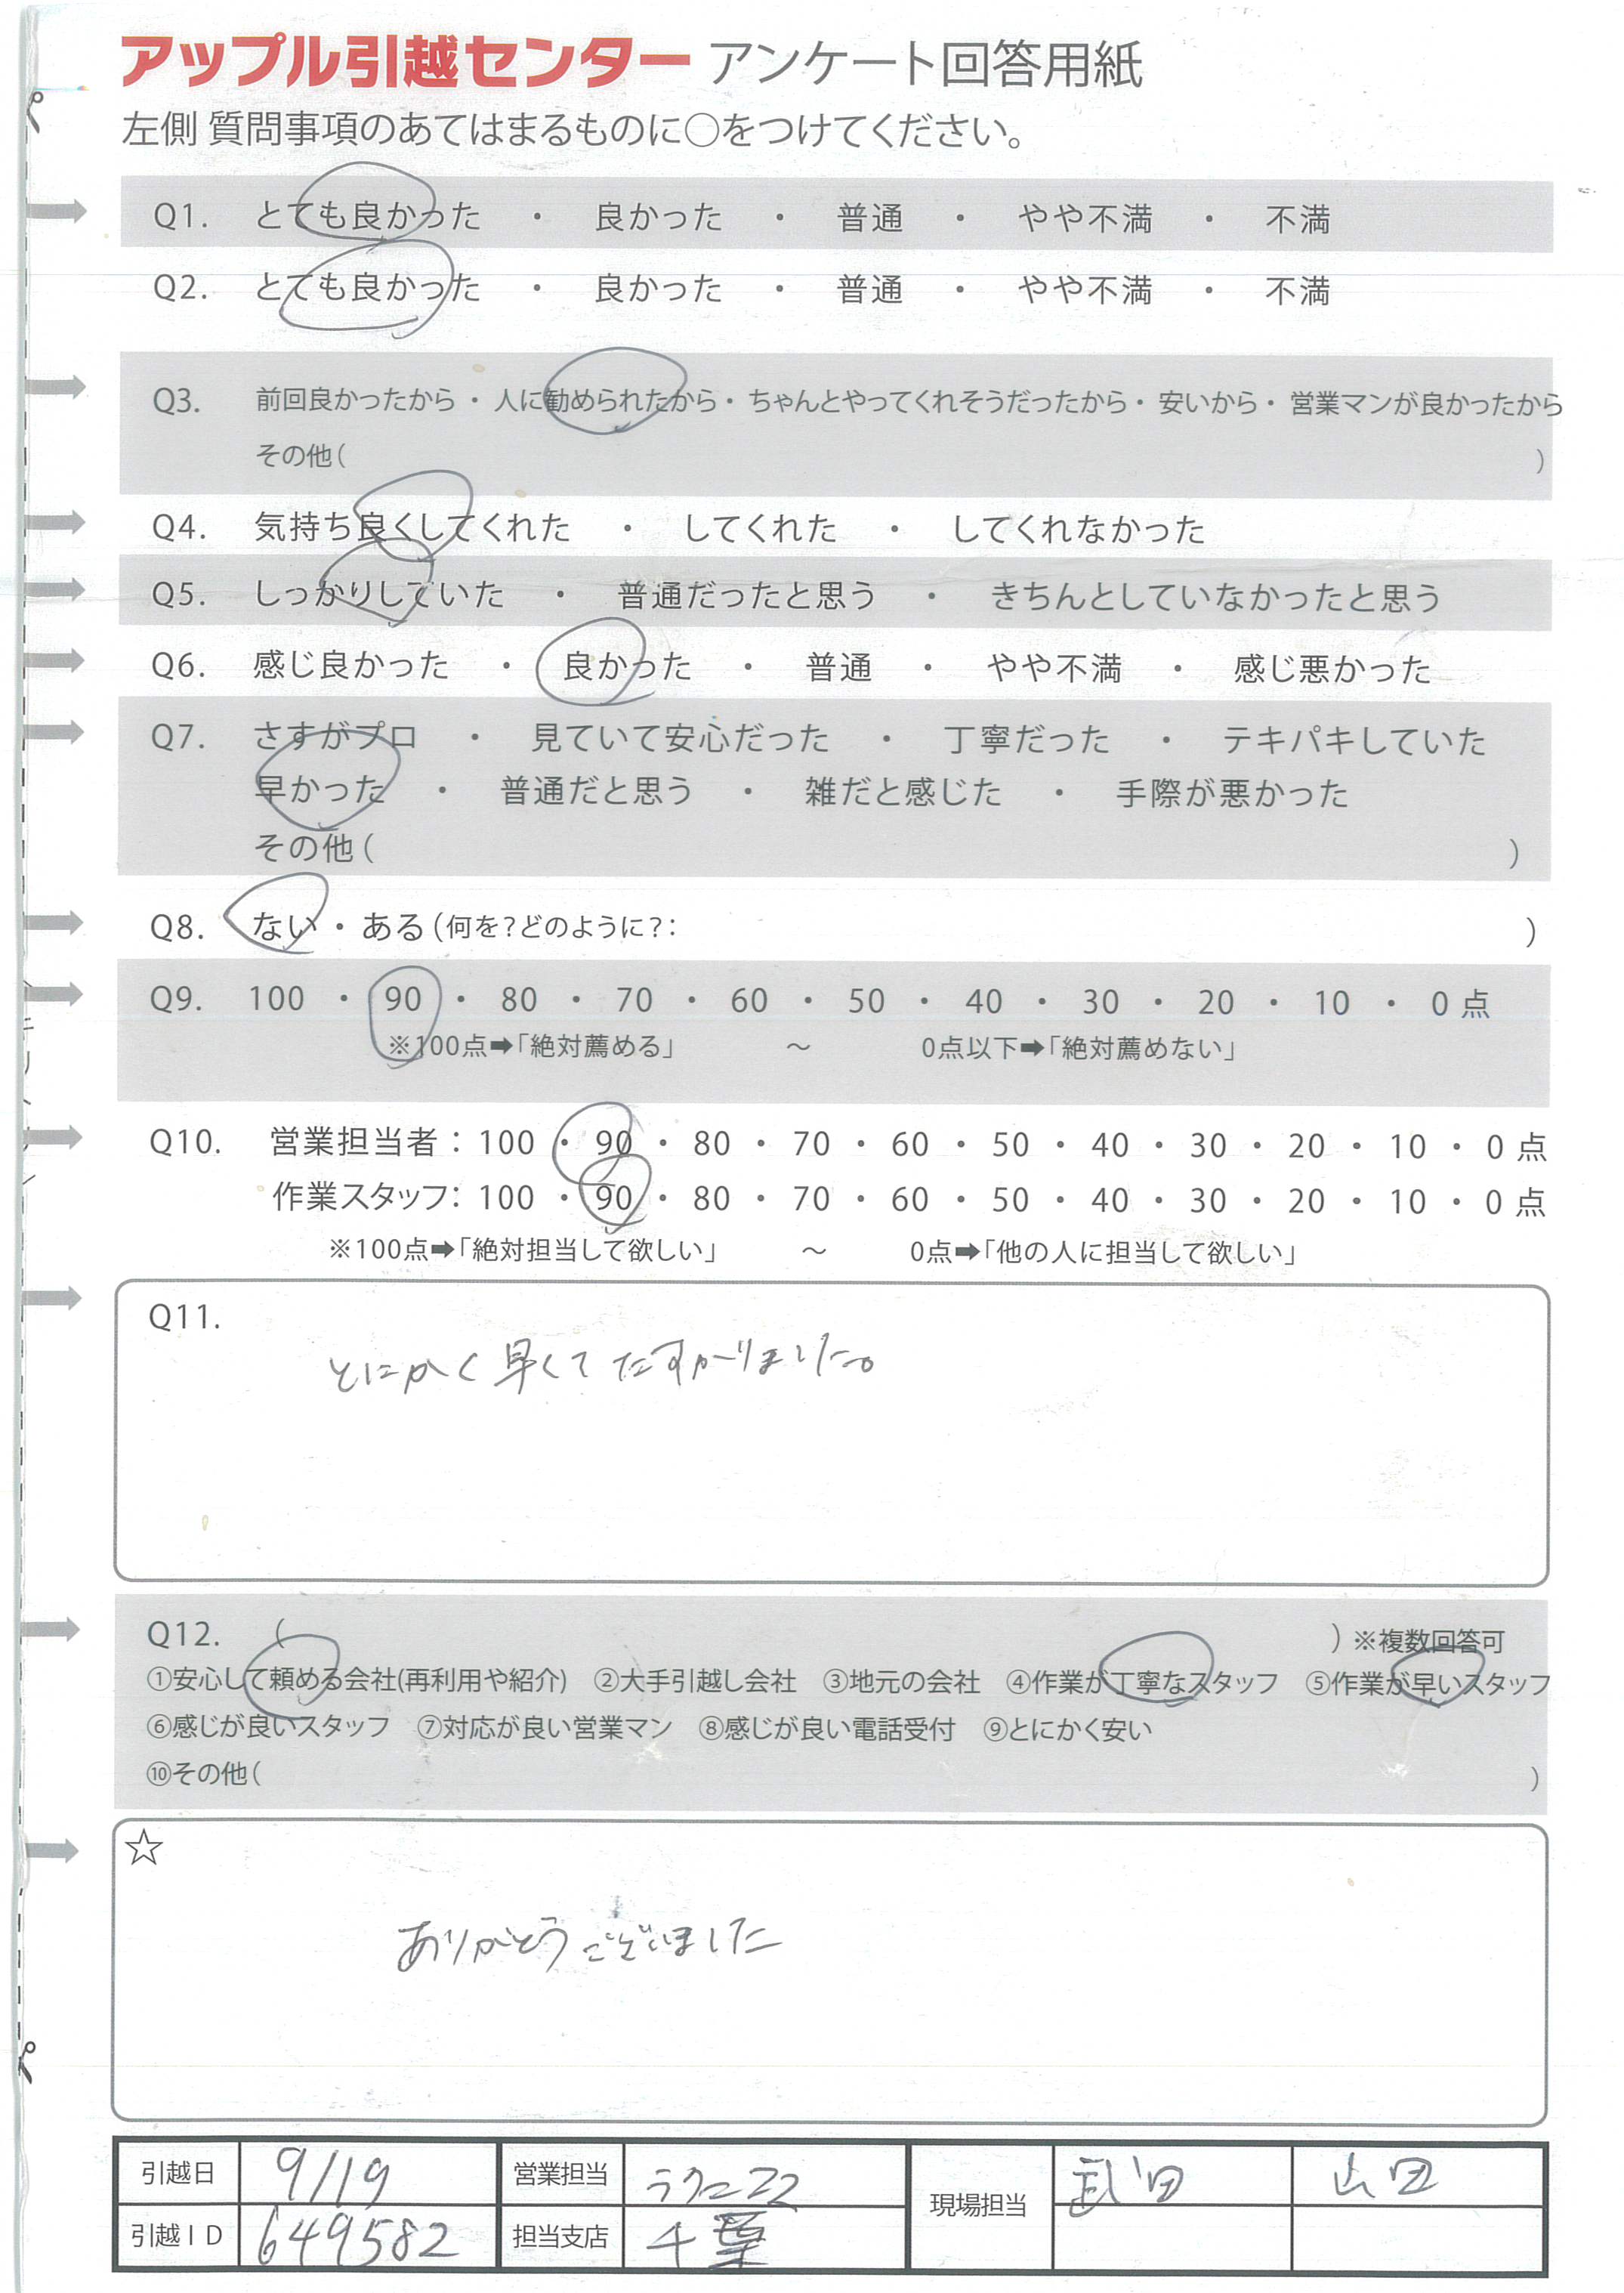 アップル引越センター アンケート回答用紙
左側 質問事項のあてはまるものに○をつけてください。
Q1. とても良かった ・ 良かった ・ 普通 ・ やや不満 ・ 不満
Q2. とても良かった ・ 良かった ・ 普通 ・ やや不満 ・ 不満
Q3. 前回良かったから ・ 人に勧められたから ・ ちゃんとやってくれそうだったから ・ 安いから ・ 営業マンが良かったから
その他( )
Q4. 気持ち良くしてくれた ・ してくれた ・ してくれなかった
Q5. しっかりしていた ・ 普通だったと思う ・ きちんとしていなかったと思う
Q6. 感じ良かった ・ 良かった ・ 普通 ・ やや不満 ・ 感じ悪かった
Q7. さすがプロ ・ 見ていて安心だった ・ 丁寧だった ・ テキパキしていた
早かった ・ 普通だと思う ・ 雑だと感じた ・ 手際が悪かった
その他( )
Q8. ない ・ ある(何を?どのように?: )
Q9. 100 ・ 90 ・ 80 ・ 70 ・ 60 ・ 50 ・ 40 ・ 30 ・ 20 ・ 10 ・ 0 点
※100点➡「絶対薦める」 ～ 0点以下➡「絶対薦めない」
Q10. 営業担当者：100 ・ 90 ・ 80 ・ 70 ・ 60 ・ 50 ・ 40 ・ 30 ・ 20 ・ 10 ・ 0 点
作業スタッフ：100 ・ 90 ・ 80 ・ 70 ・ 60 ・ 50 ・ 40 ・ 30 ・ 20 ・ 10 ・ 0 点
※100点➡「絶対担当して欲しい」 ～ 0点➡「他の人に担当して欲しい」
Q11.
とにかく早くてたすかりました。
Q12. ( ) ※複数回答可
①安心して頼める会社(再利用や紹介) ②大手引越し会社 ③地元の会社 ④作業が丁寧なスタッフ ⑤作業が早いスタッフ
⑥感じが良いスタッフ ⑦対応が良い営業マン ⑧感じが良い電話受付 ⑨とにかく安い
⑩その他( )
☆
ありがとうございました
引越日 9/19 営業担当 現場担当 武田 山田
引越ID 649582 担当支店 千葉